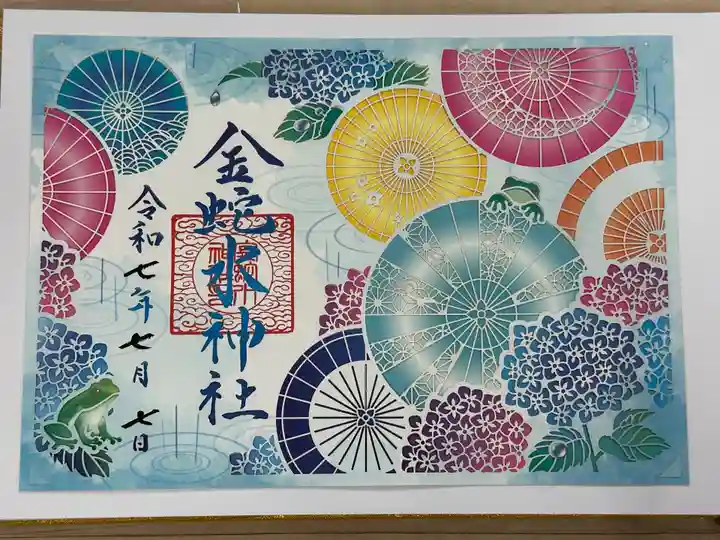 金蛇水神社
令和七年七月七日